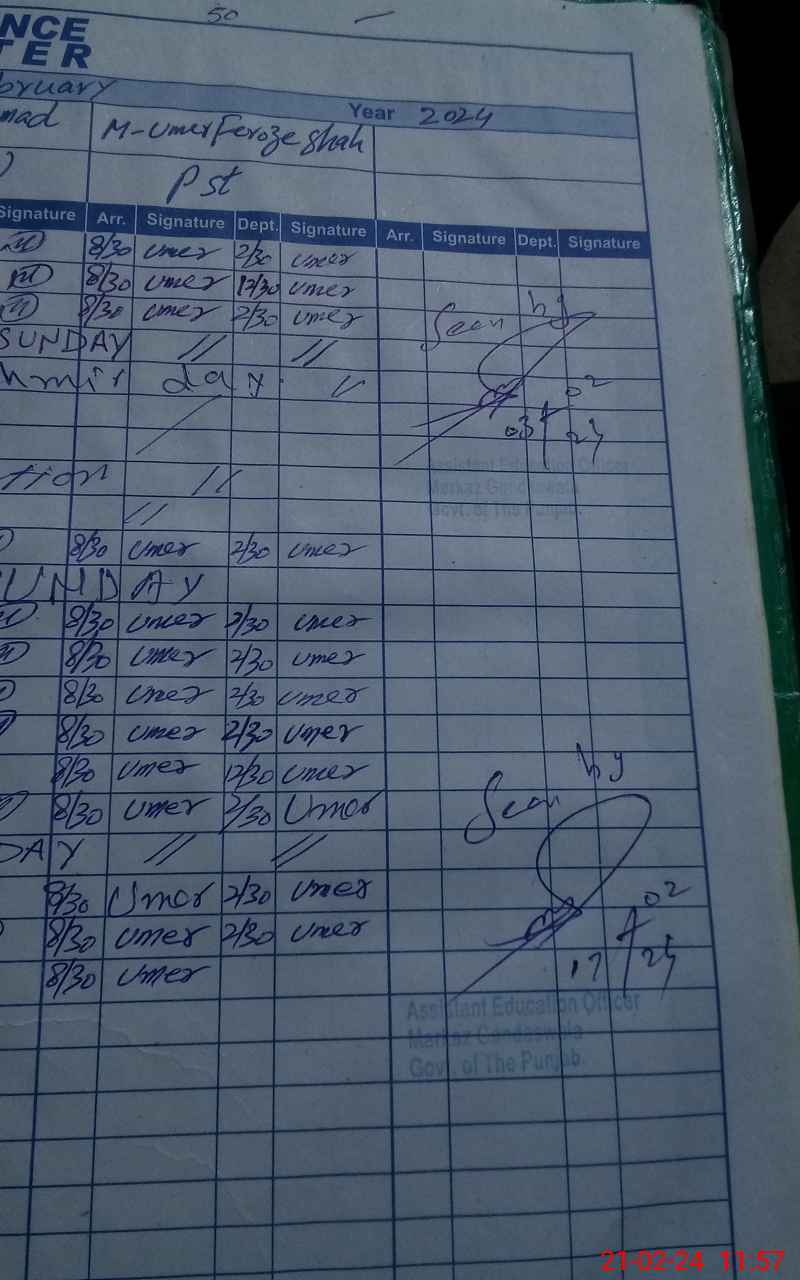 50
NCE
TER
bruary Year 2024
mad M-Umer Feroze shah
Pst
Signature Arr. Signature Dept. Signature Arr. Signature Dept. Signature
8/30 umer 2/30 umer
8/30 umer 12/30 umer
8/30 umer 2/30 umer
Seen by
SUNDAY // //
hmir day //
02
03 24
tion //
Assistant Education Officer
Markaz
Govt. of The Punjab.
//
8/30 umer 2/30 umer
UNDAY
8/30 umer 2/30 umer
8/30 umer 2/30 umer
8/30 umer 2/30 umer
8/30 umer 2/30 umer
8/30 umer 12/30 umer
Seen by
8/30 umer 2/30 Umer
DAY // //
8/30 Umer 2/30 umer
02
8/30 umer 2/30 umer
17 24
8/30 umer
Assistant Education Officer
Markaz Gandaswala
Govt. of The Punjab.
21-02-24 11:57